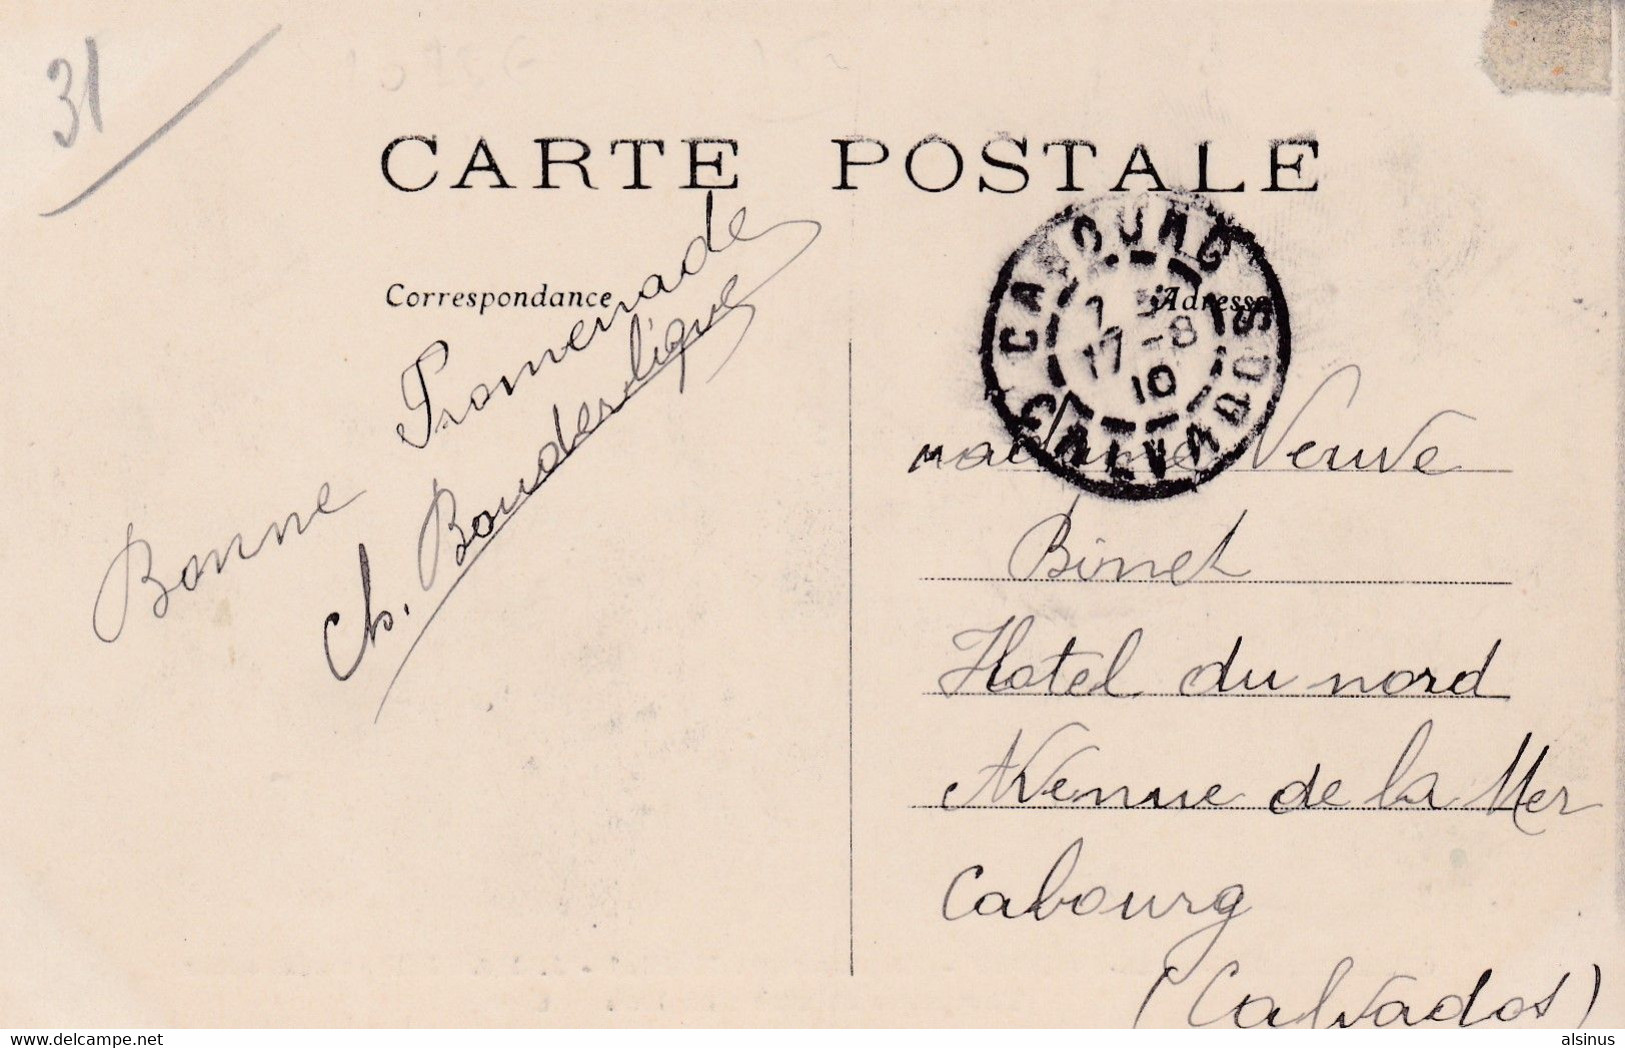 31
CARTE POSTALE
Correspondance
Adresse
Bonne Promenade
Ch. Bouderlique
CABOURG
7
17-8
10
CALVADOS
madame Veuve
Binet
Hotel du nord
Avenue de la Mer
Cabourg
(Calvados)
delcampe.net
alsinus